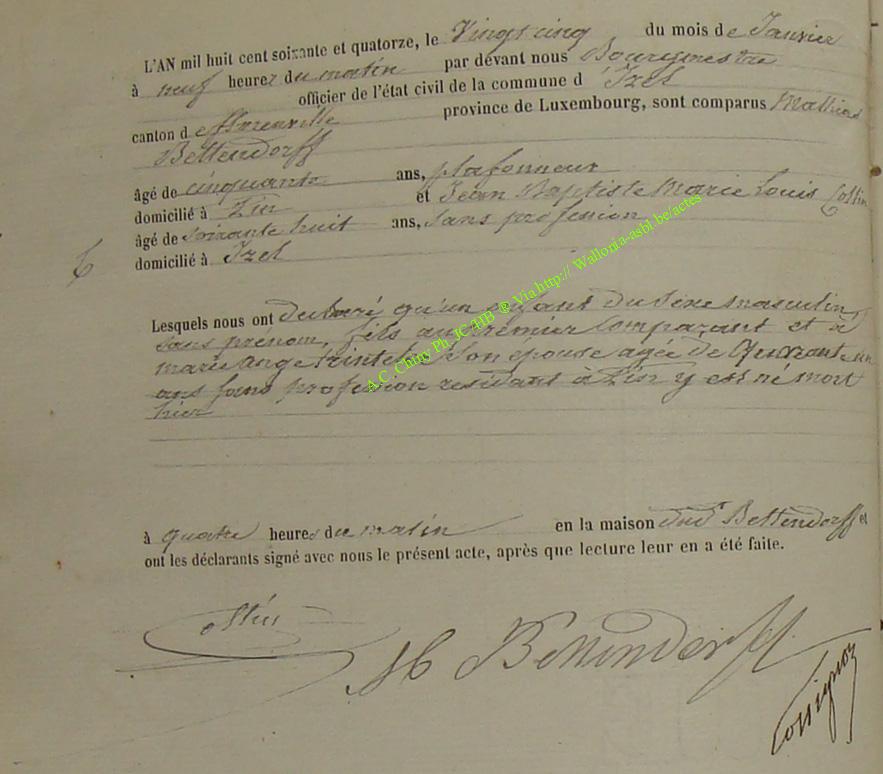 L'AN mil huit cent soixante et quatorze, le Vingt cinq du mois de Janvier
à neuf heures du matin par dévant nous Bourgmestre
officier de l'état civil de la commune d'Izel
canton de Florenville province de Luxembourg, sont comparus Mathias
Bettendorff
âgé de cinquante ans, plafonneur
domicilié à Pin et Jean Baptiste Marie Louis Collin
âgé de soixante huit ans, sans profession
domicilié à Izel
Lesquels nous ont déclaré qu'un enfant du sexe masculin
sans prénom, fils au premier comparant et à
marie ange son épouse agée de quarante un
ans sans profession residant à Pin y est né mort
hier
à quatre heures du matin en la maison dud^t Bettendorff et
ont les déclarants signé avec nous le présent acte, après que lecture leur en a été faite.
M Bettendorff
Rossignon
A.C. Chiny Ph. JC HB ® Via http:// Wallonia-asbl.be/actes